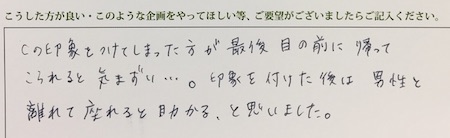 こうした方が良い・このような企画をやってほしい等、ご要望がございましたらご記入ください。
Cの印象をつけてしまった方が最後目の前に帰って
こられると気まずい…。印象を付けた後は男性と
離れて座れると助かる、と思いました。